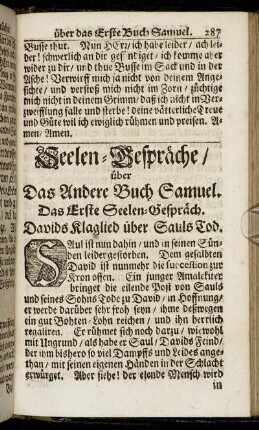 über das Erste Buch Samuel. 287
Busse thut. Nun HErr/ ich habe leider/ ach lei-
der! schwerlich an dir gesündiget/ ich komme aber
wider zu dir/ und thue Busse im Sack und in der
Asche! Verwirff mich ja nicht von deinem Ange-
sichte/ und verstoß mich nicht im Zorn/ züchtige
mich nicht in deinem Grimm/ daß ich nicht in Ver-
zweifflung falle und sterbe! deine vätterliche Treu
und Güte wil ich ewiglich rühmen und preisen. A-
men/ Amen.
Seelen-Gespräche/
über
Das Andere Buch Samuel.
Das Erste Seelen-Gespräch.
Davids Klaglied über Sauls Tod.
SAul ist nun dahin/ und in seinen Sün-
den leider gestorben. Dem gesalbten
David ist nunmehr die succession zur
Kron offen. Ein junger Amalekiter
bringet die eilende Post von Sauls
und seines Sohns Tode zu David/ in Hoffnung/
er werde darüber sehr froh seyn/ ihme deßwegen
ein gut Bohten-Lohn reichen/ und ihn herrlich
regaliren. Er rühmet sich noch darzu/ wiewohl
mit Ungrund/ als habe er Saul/ Davids Feind/
der ihm bishero so viel Dampffs und Leides ange-
than/ mit seinen eigenen Händen in der Schlacht
erwürget. Aber siehe! der elende Mensch wird
in